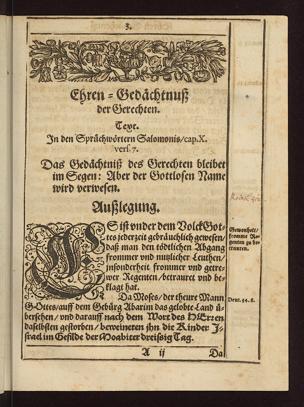 3.
Ehren-Gedächtnuß
der Gerechten.
Text.
In den Sprüchwörtern Salomonis/cap.X.
vers. 7.
Das Gedächtniß des Gerechten bleibet
im Segen: Aber der Gottlosen Name
wird verwesen.
Außlegung.
ES ist vnder dem Volck Got-
tes jederzeit gebräuchlich gewesen/
daß man den tödtlichen Abgang
frommer vnd nutzlicher Leuthen/
insonderheit frommer vnd getre-
wer Regenten/betrauret vnd be-
klagt hat.
Da Moses/der theure Mann
Gottes/auff dem Gebürg Abarim das gelobte Land ü-
bersehen/vnd darauff nach dem Wort des HErren
daselbsten gestorben/beweineten ihn die Kinder I-
srael im Gefilde der Moabiter dreißig Tag.
Gewonheit/
fromme Re-
genten zu be-
trauren.
Deut. 34. 8.
A ij
Da